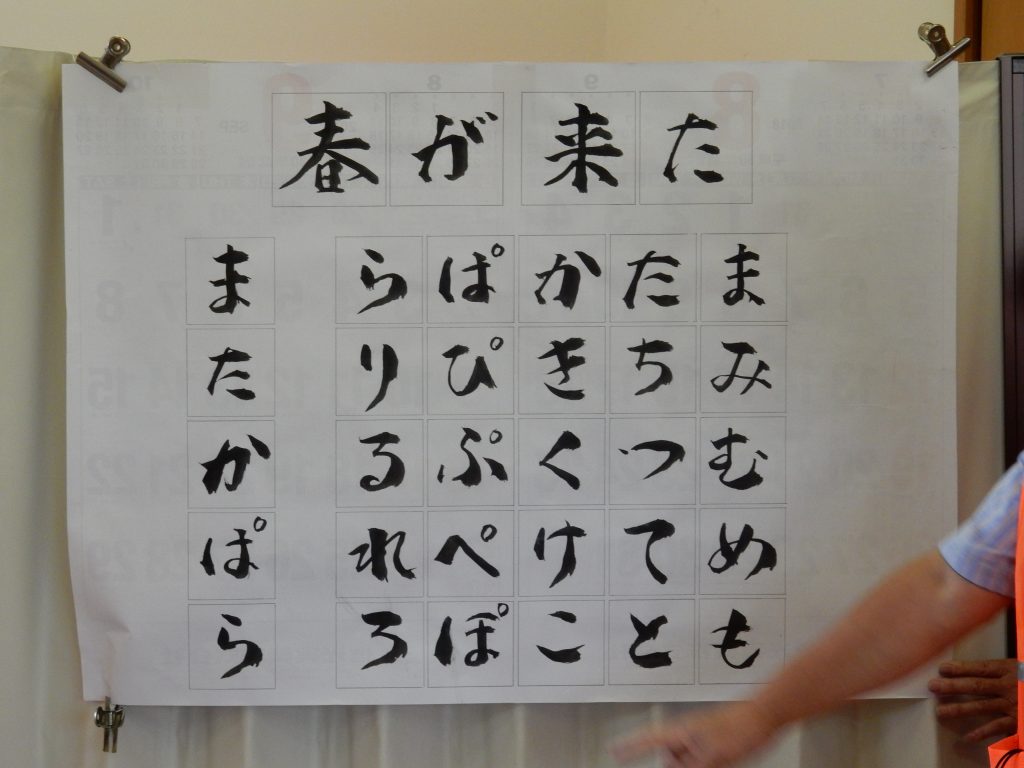 春が来た
まみむめも
たちつてと
かきくけこ
ぱぴぷぺぽ
らりるれろ
またかぱら